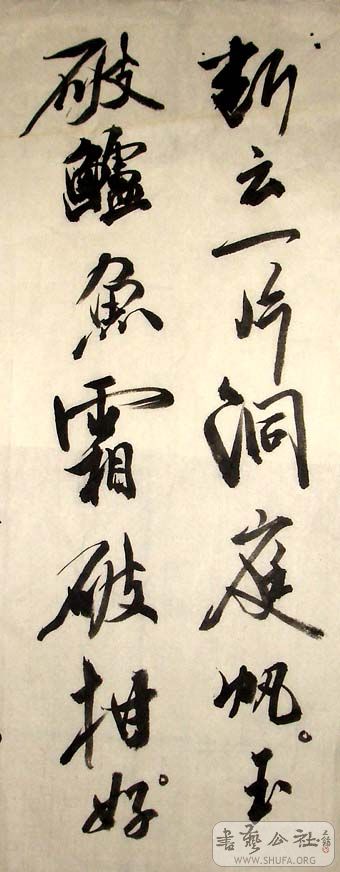 断云一片洞庭帆。玉
破鱸魚霜破柑。好
書藝公社
WWW.SHUFA.ORG